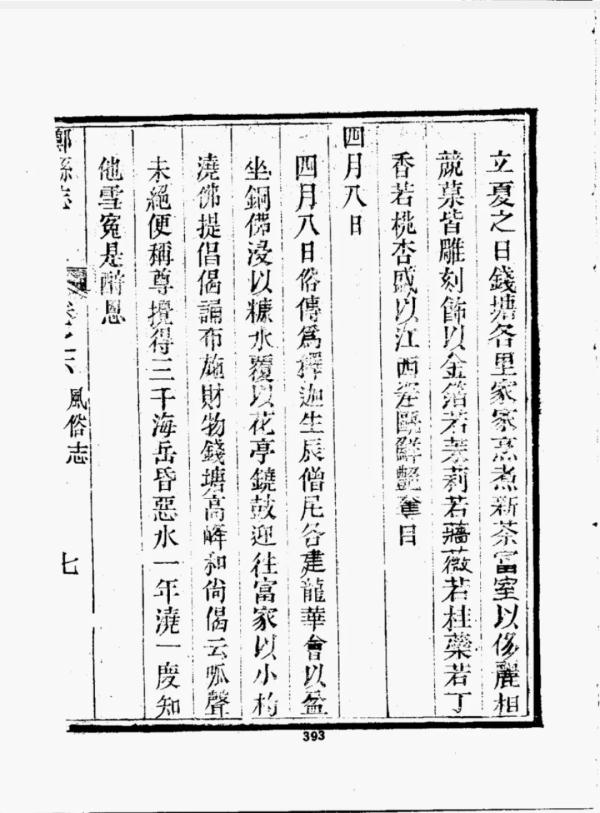 立夏之日錢塘各里家家烹煮新茶富室以侈麗相
競菓皆雕刻飾以金箔若茉莉若薔薇若桂蘂若丁
香若桃杏盛以江西窰甌鮮艷奪目
四月八日
四月八日俗傳爲釋迦生辰僧尼各建龍華會以盆
坐銅佛浸以糖水覆以花亭鐃鼓迎往富家以小杓
澆佛提倡偈誦布施財物錢塘高峰和尙偈云呱聲
未絕便稱尊攪得三千海岳昏惡水一年澆一度知
他雪寃是酧恩
縣志
卷之六 風俗志 七
393